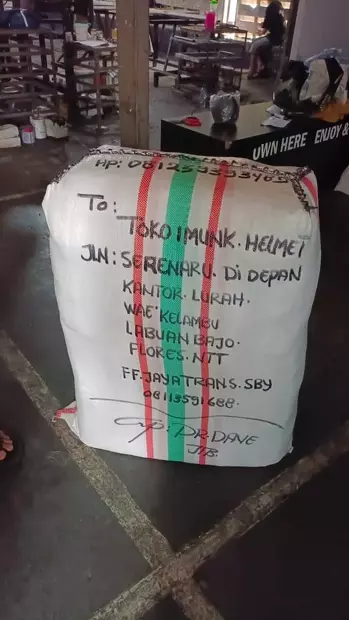 UWN HERE ENJOY &
To:
TOKO IMUNK. HELMET
JLN: SERENARU. DI DEPAN
KANTOR. LURAH.
WAE KELAMBU
LABUAN BAJO.
FLORES. NTT
FF. JAYATRANS. SBY
08113591688.
DR. DAVE
JTB.